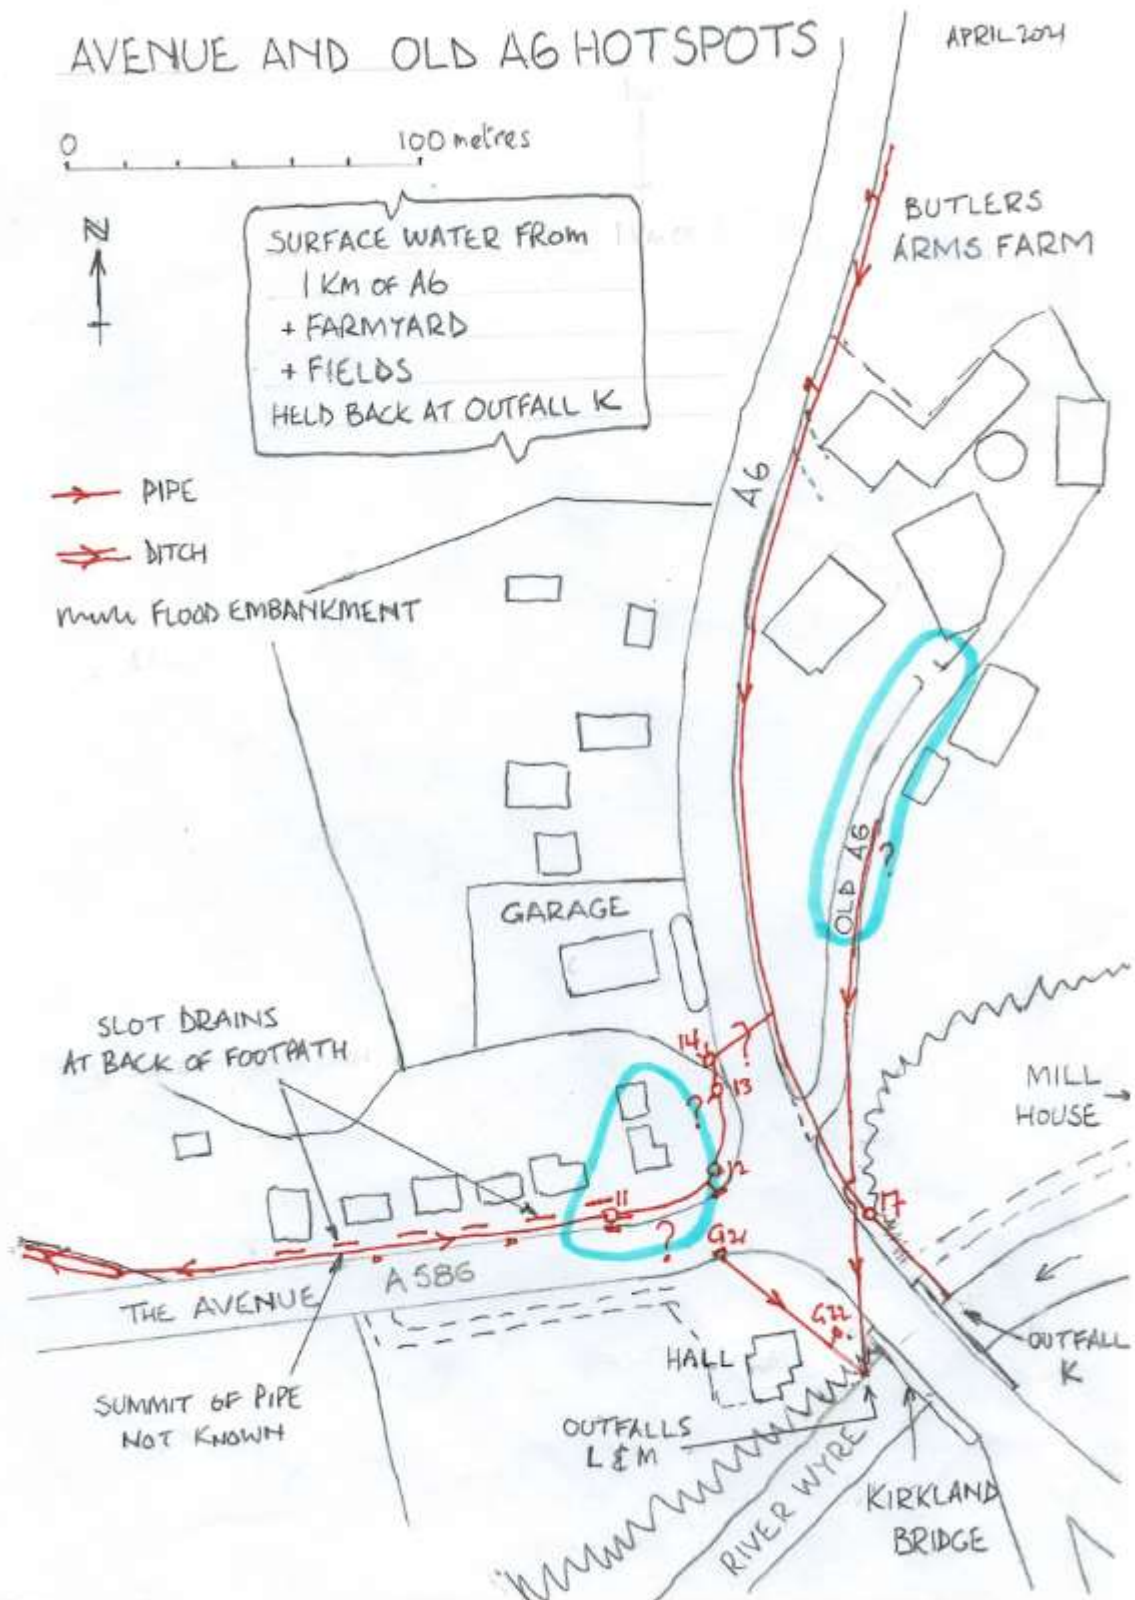 AVENUE AND OLD A6 HOTSPOTS
APRIL 2021
0 100 metres
N
SURFACE WATER FROM
1 KM OF A6
+ FARMYARD
+ FIELDS
HELD BACK AT OUTFALL K
BUTLERS
ARMS FARM
PIPE
DITCH
FLOOD EMBANKMENT
A6
OLD A6
?
GARAGE
SLOT DRAINS
AT BACK OF FOOTPATH
14
?
13
?
12
11
?
G21
17
MILL
HOUSE
A586
THE AVENUE
G22
HALL
OUTFALL
K
SUMMIT OF PIPE
NOT KNOWN
OUTFALLS
L & M
RIVER WYRE
KIRKLAND
BRIDGE